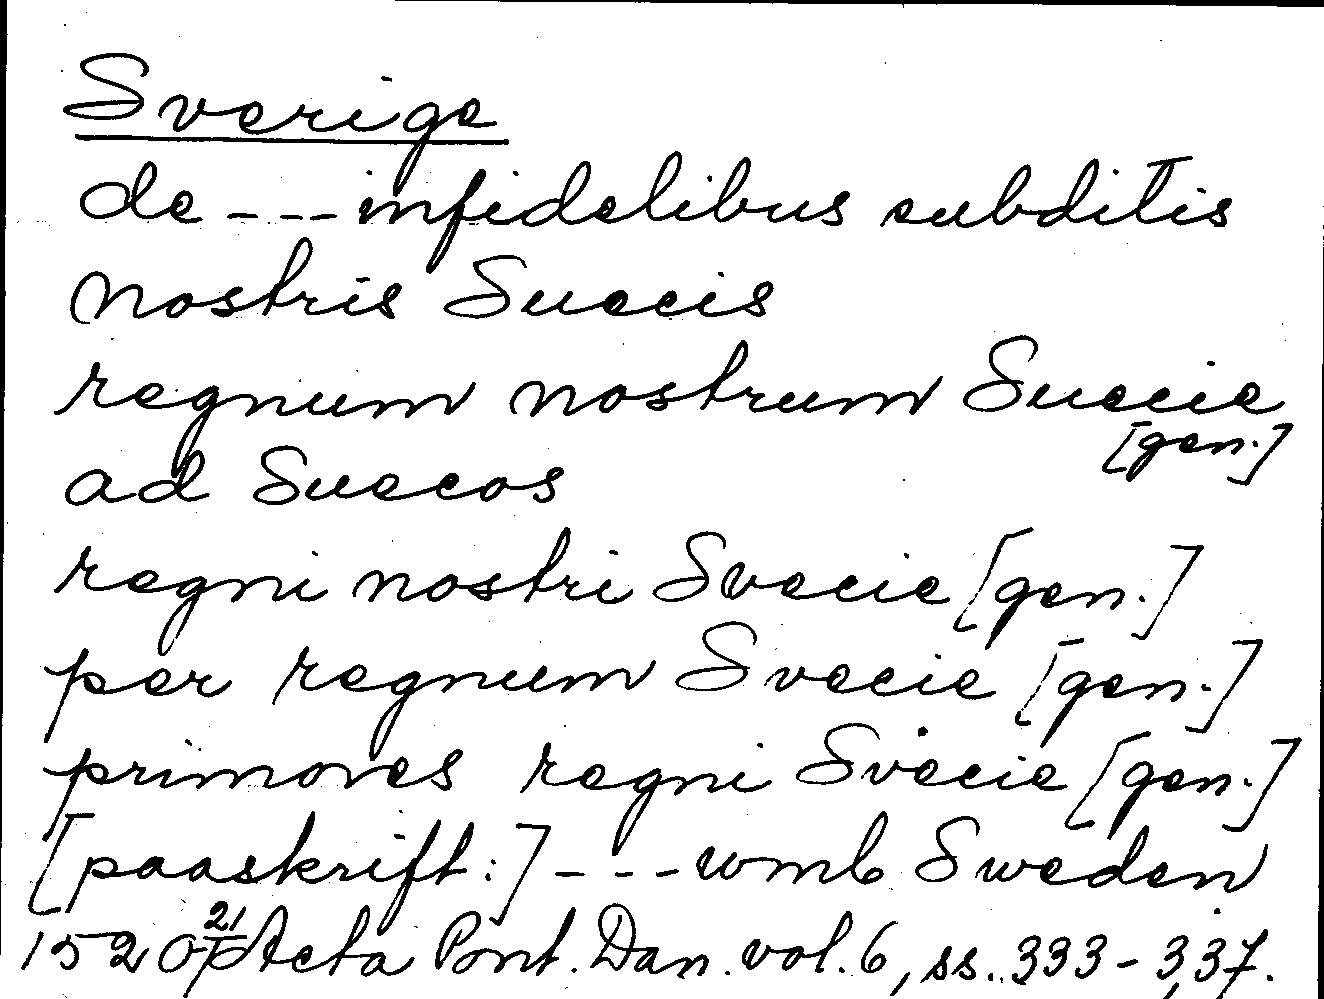 Sverige
de - - - infidelibus subditis
nostris Suecis
regnum nostrum Suecie
[gen.]
ad Suecos
regni nostri Svecie [gen.]
per regnum Svecie [gen.]
primores regni Svecie [gen.]
[paaskrift:] - - - wmb Sweden
1520 21/ Acta Pont. Dan. vol. 6, ss. 333-337.